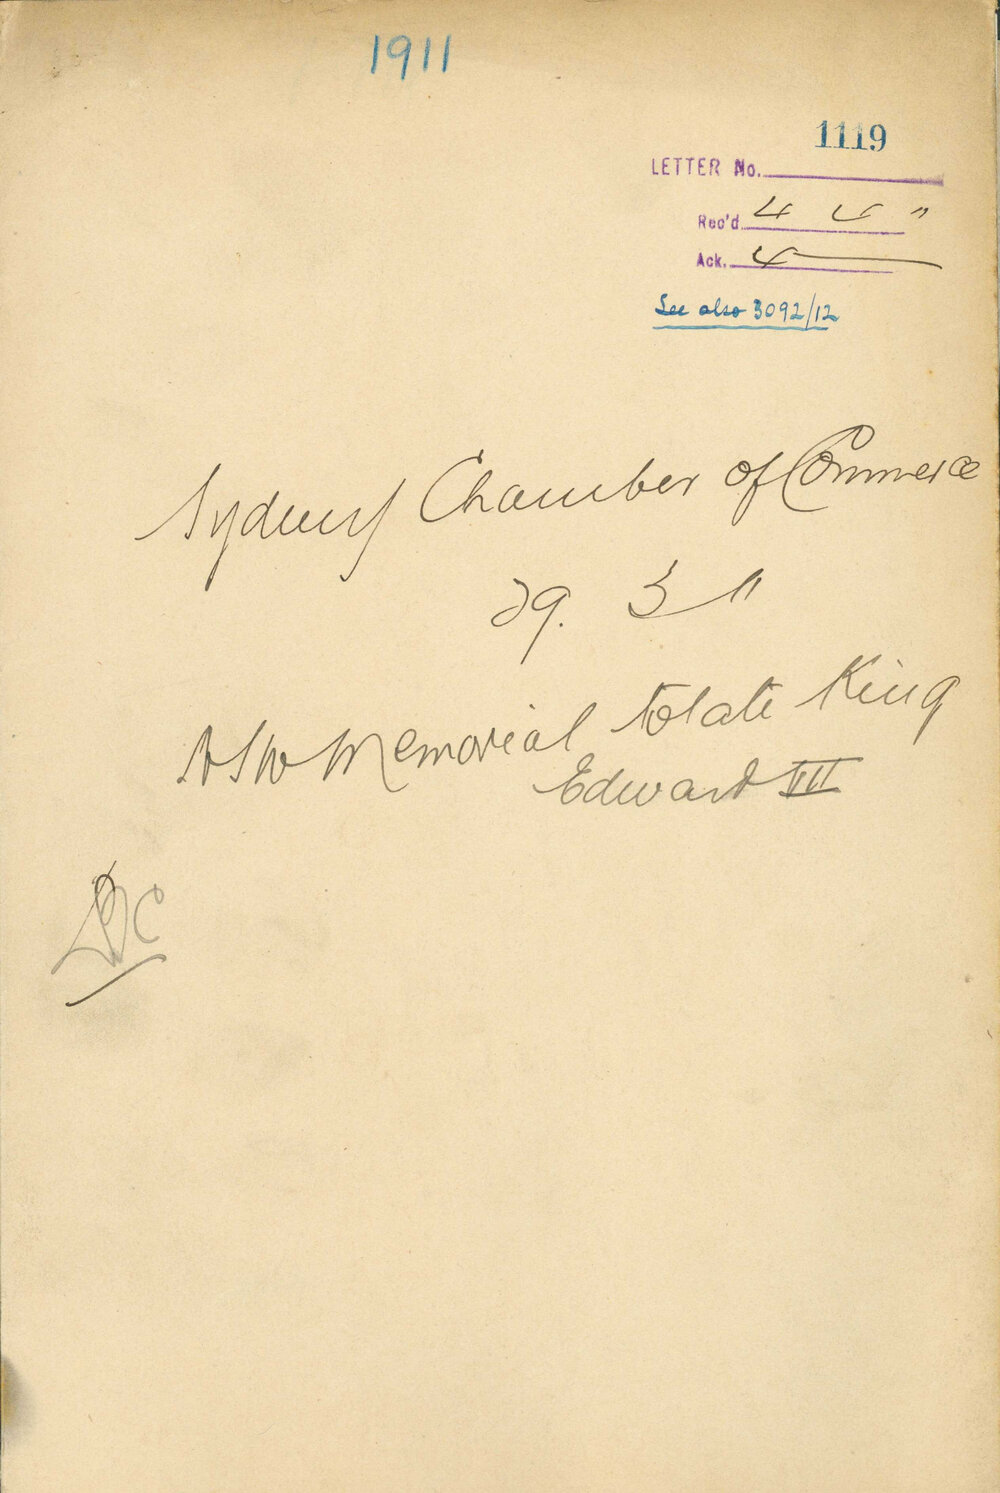 1911
1119
LETTER No.
Rec'd 4 4 "
Ack. 4
See also 3092/12
Sydney Chamber of Commerce
29. 3 "
NSW Memorial to late King
Edward VII